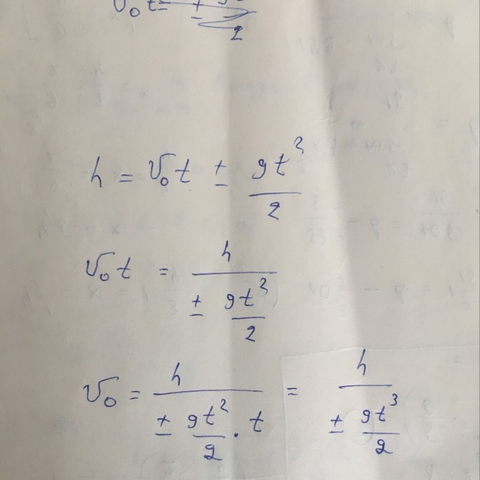 v₀t =
2
h = v₀t ± gt²/2
v₀t = h / (± gt²/2)
v₀ = h / (± gt²/2 · t) = h / (± gt³/2)